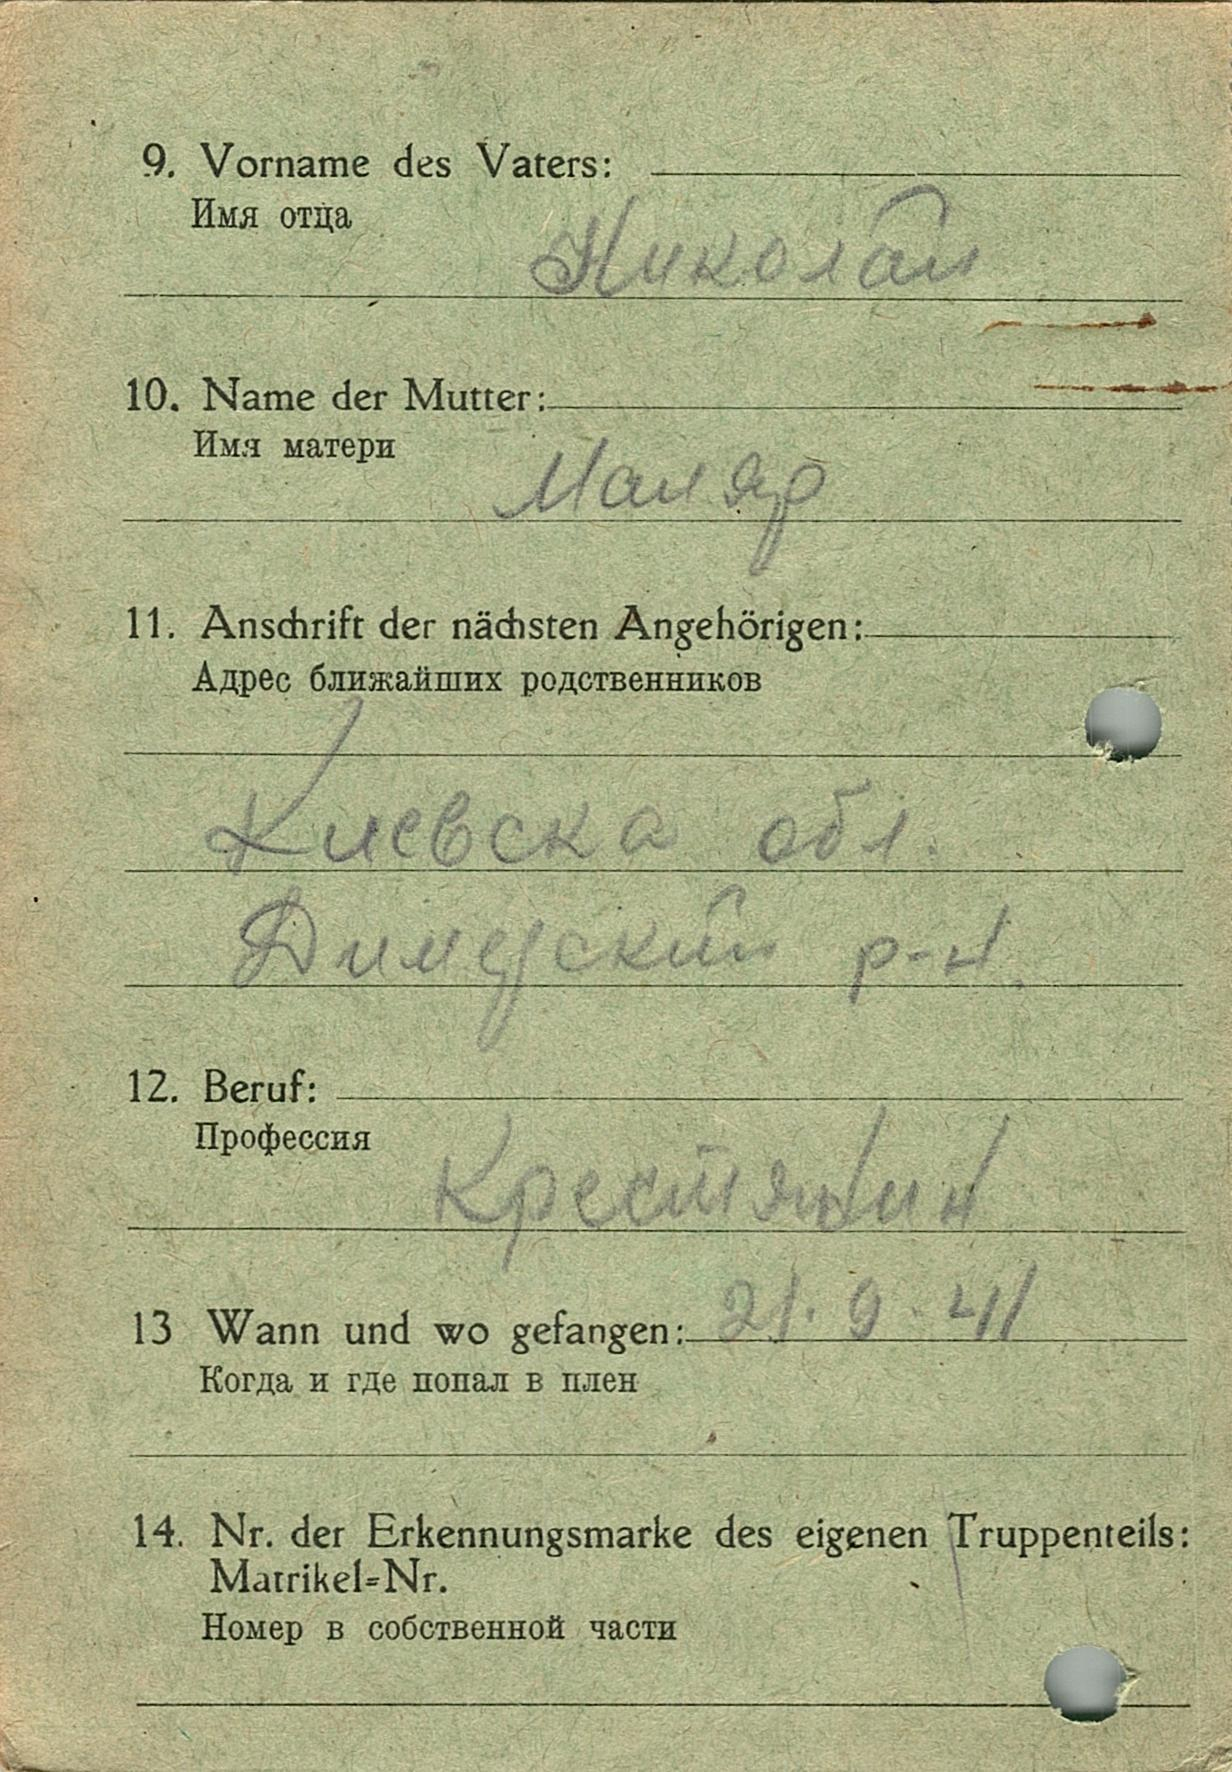 9. Vorname des Vaters:
Имя отца
Николай
10. Name der Mutter:
Имя матери
Маляр
11. Anschrift der nächsten Angehörigen:
Адрес ближайших родственников
Киевска обл.
Димерский р-н.
12. Beruf:
Профессия
Крестянин
13 Wann und wo gefangen: 21.9.41
Когда и где попал в плен
14. Nr. der Erkennungsmarke des eigenen Truppenteils:
Matrikel-Nr.
Номер в собственной части